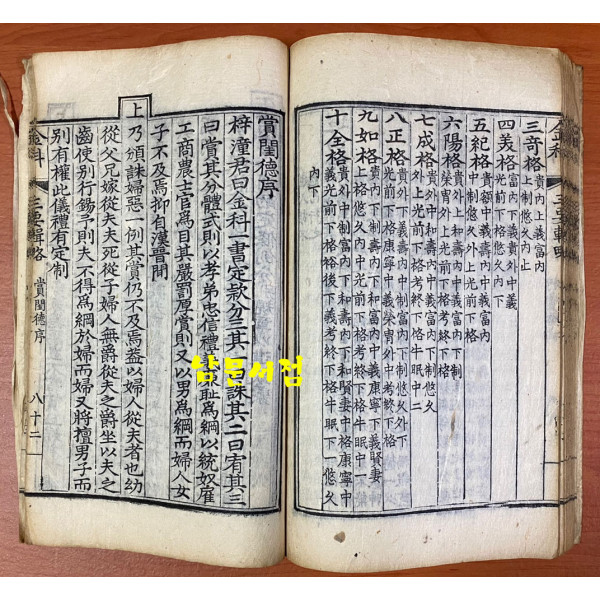 三奇格 貴內上義富內
上制悠久內止
四美格 富內下義貴外中義
光前下格悠久內下
五紀格 貴額中義壽內中義
制中悠久外上光前下格
六陽格 貴外上和壽內中義富內下制
榮胄外上光前下格考終下格
七成格 貴外中和壽內中義富內下制悠久
外上光前下格考終下格牛眠中二
八正格 貴外下義壽內中制富內下制悠久外下
光前下格
九如格
上格悠久內中光前下格考終下格牛眠中一
十全格 貴外中制富內下和壽內下和賢妻中格康寧中
義光前下格裕後下義考終下格牛眠下一悠久
內下
賞閨德序
梓潼君曰金科一書定款分三其一曰誅其二曰宥其三
曰賞其分體式則以孝弟忠信禮義廉恥爲綱以統奴雇
工商農士官爲目其嚴罰厚賞則又以男爲綱而婦人女
子不及焉抑自漢晉間
上乃頒誅婦惡一例其賞仍不及焉蓋以婦人從夫者也幼
從父兄嫁從夫夫死從子婦人無爵從夫之爵坐以夫之
齒使別行錫予則夫不得爲綱於婦而夫又將擅男子而
別有權此儀禮有定制
金科 三要輯略 賞閨德序 八十二
남문서점